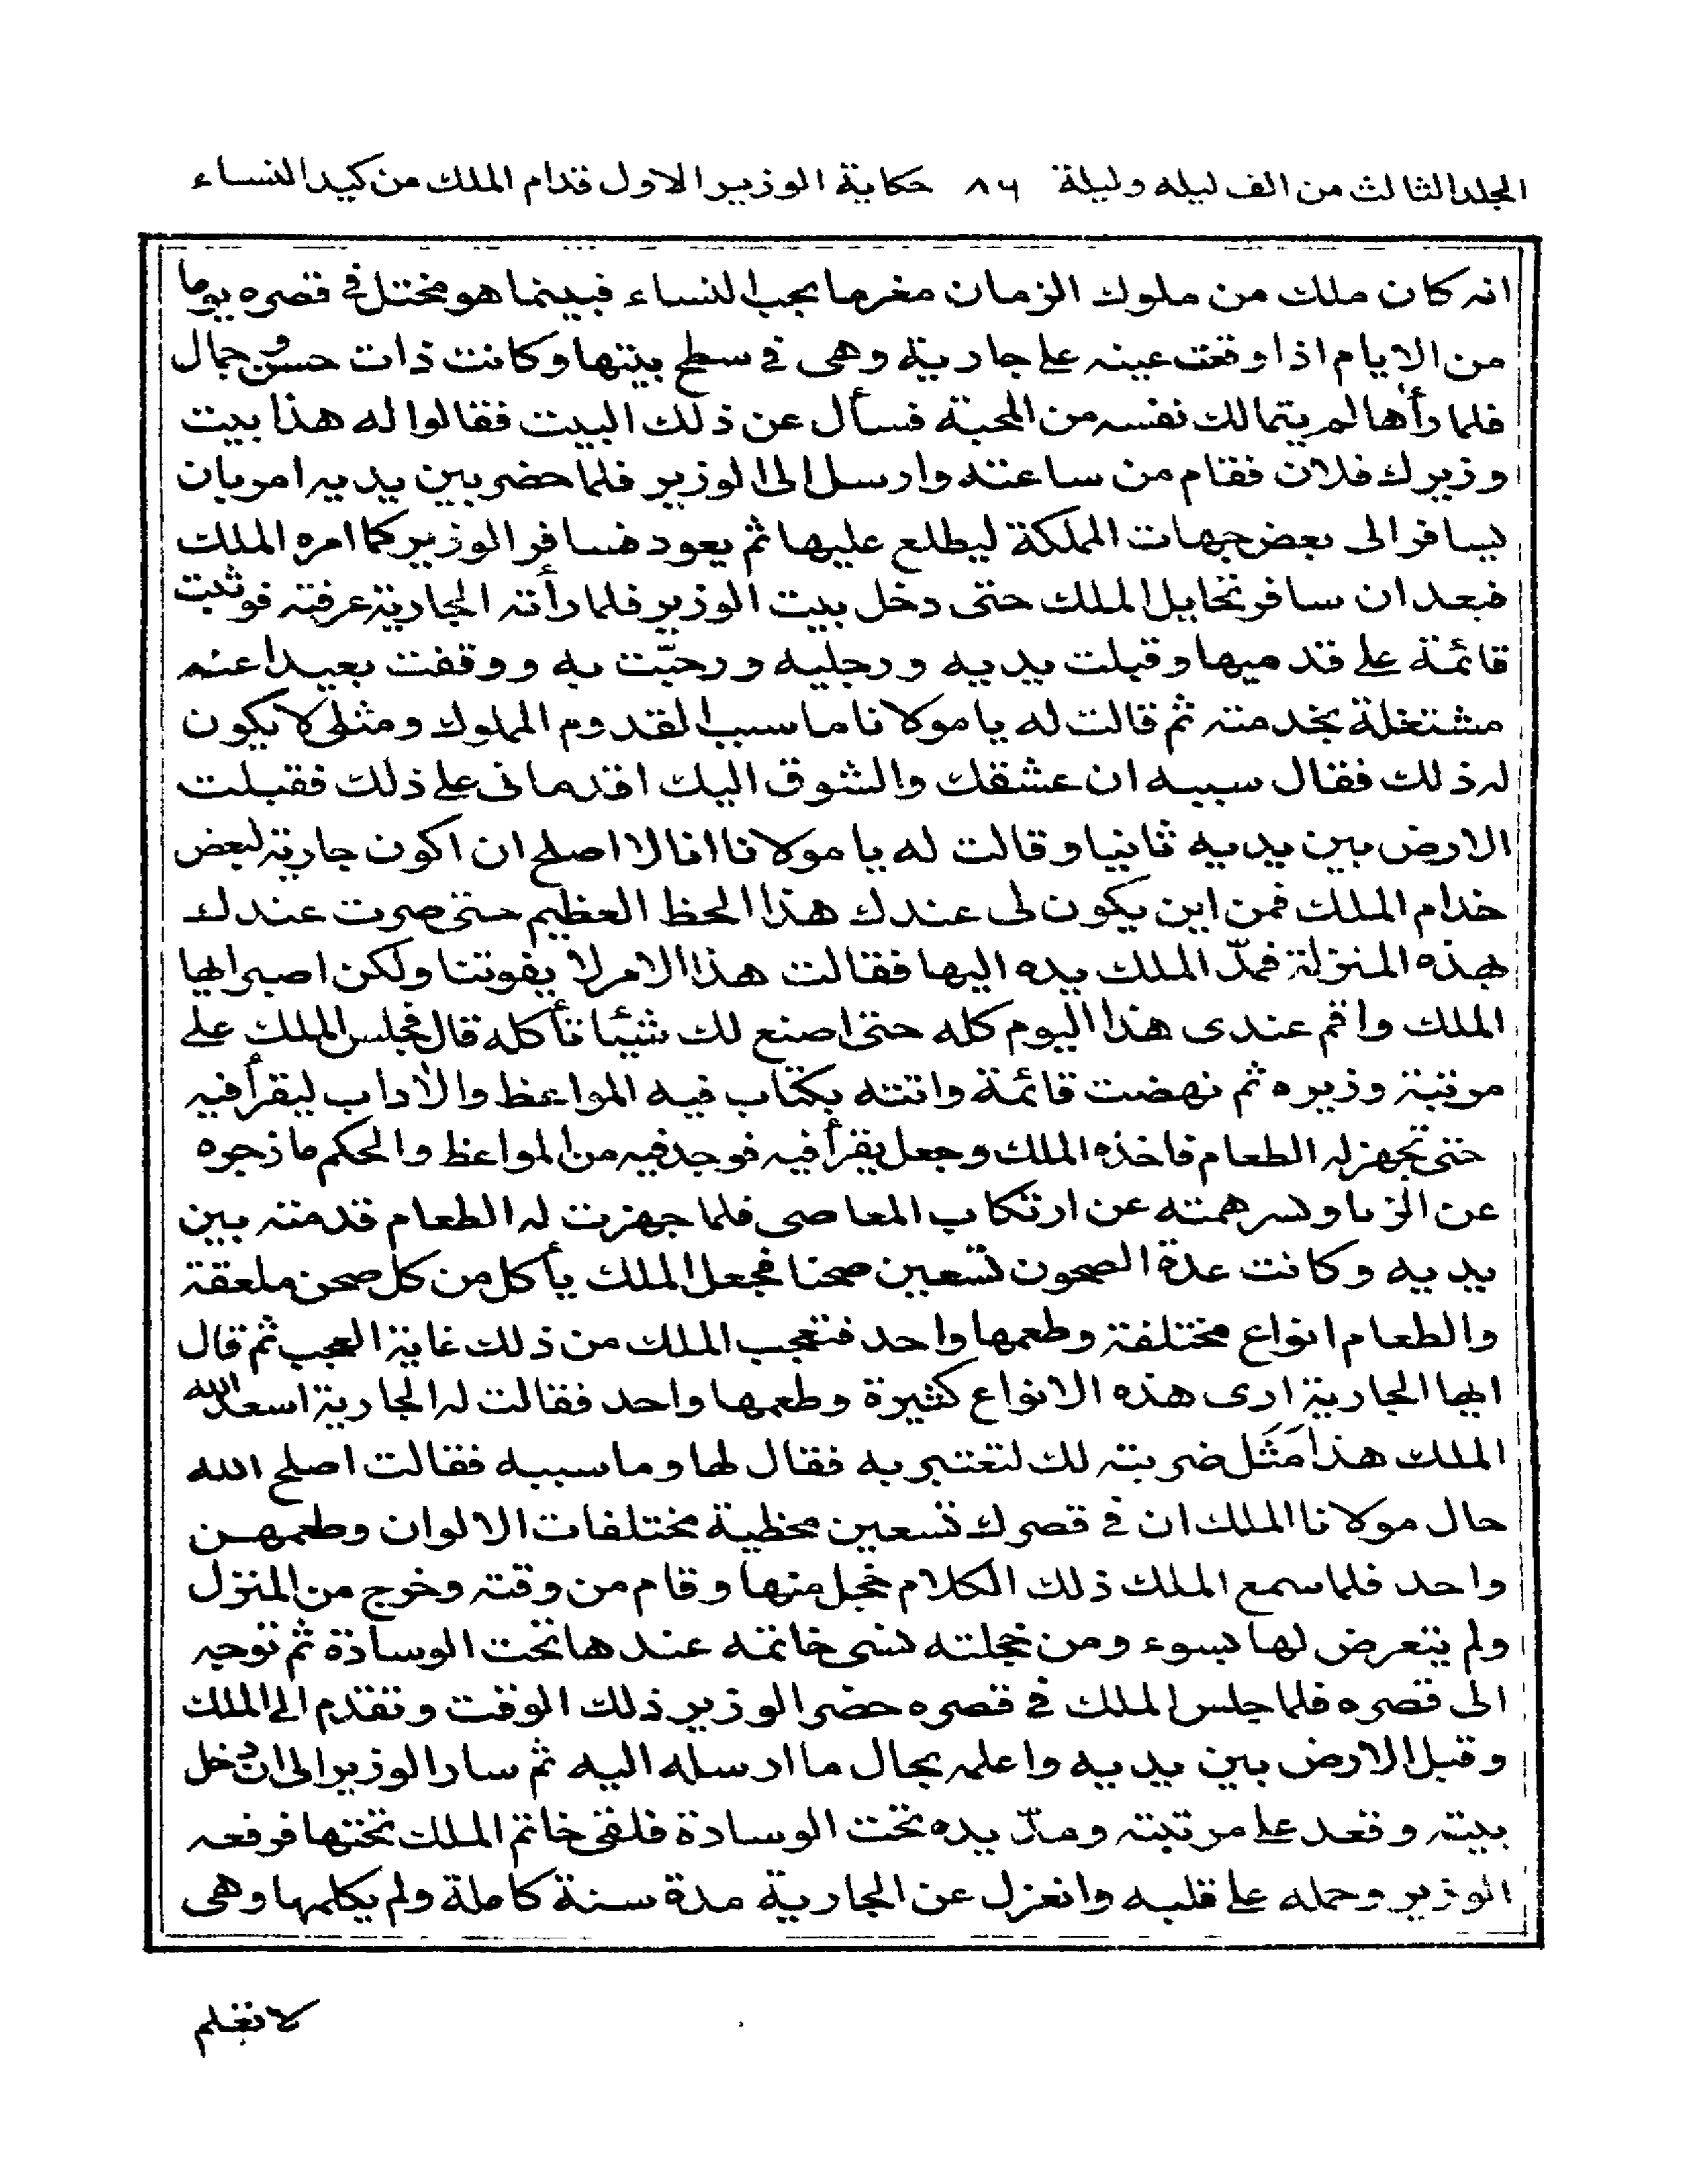 المجلد الثالث من الف ليله وليلة ٨٦ حكاية الوزير الاول قدام الملك من كيد النساء
انه كان ملك من ملوك الزمان مغرما بحب النساء فبينما هو مختل في قصره يوما
من الايام اذا وقعت عينه على جارية وهى فى سطح بيتها وكانت ذات حسن وجمال
فلما رأها لم يتمالك نفسه من المحبة فسأل عن ذلك البيت فقالوا له هذا بيت
وزيرك فلان فقام من ساعته وارسل الى الوزير فلما حضر بين يديه امر بان
يسافر الى بعض جهات المملكة ليطلع عليها ثم يعود فسافر الوزير كما امره الملك
فبعد ان سافر تحايل الملك حتى دخل بيت الوزير فلما رأته الجارية عرفته فوثبت
قائمة على قدميها وقبلت يديه ورجليه ورحبّت به ووقفت بعيدا عنه
مشتغلة بخدمته ثم قالت له يا مولانا ما سبب القدوم المملوك ومثلى لا يكون
له ذلك فقال سببه ان عشقك والشوق اليك اقدمانى على ذلك فقبلت
الارض بين يديه ثانيا وقالت له يا مولانا انا لا اصلح ان اكون جارية لبعض
خدام الملك فمن اين يكون لى عندك هذا الحظ العظيم حتى صرت عندك
بهذه المنزلة فمدّ الملك يده اليها فقالت هذا الامر لا يفوتنا ولكن اصبر ايها
الملك واقم عندى هذا اليوم كله حتى اصنع لك شيئا تأكله قال فجلس الملك على
مرتبة وزيره ثم نهضت قائمة واتته بكتاب فيه المواعظ والاداب ليقرأ فيه
حتى تجهز له الطعام فاخذه الملك وجعل يقرأ فيه فوجد فيه من المواعظ والحكم ما زجره
عن الزنا وكسر همته عن ارتكاب المعاصى فلما جهزت له الطعام قدمته بين
يديه وكانت عدة الصحون تسعين صحنا فجعل الملك يأكل من كل صحن ملعقة
والطعام انواع مختلفة وطعمها واحد فتعجب الملك من ذلك غاية العجب ثم قال
ايها الجارية ارى هذه الانواع كثيرة وطعمها واحد فقالت له الجارية اسعد الله
الملك هذا مَثَل ضربته لك لتعتبر به فقال لها وما سببه فقالت اصلح الله
حال مولانا الملك ان فى قصرك تسعين محظية مختلفات الالوان وطعمهن
واحد فلما سمع الملك ذلك الكلام خجل منها وقام من وقته وخرج من المنزل
ولم يتعرض لها بسوء ومن خجلته نسى خاتمه عندها تحت الوسادة ثم توجه
الى قصره فلما جلس الملك فى قصره حضر الوزير ذلك الوقت وتقدم الى الملك
وقبل الارض بين يديه واعلمه بحال ما ارسله اليه ثم سار الوزير الى ان دخل
بيته وقعد على مرتبته ومدّ يده تحت الوسادة فلقى خاتم الملك تحتها فرفعه
الوزير وحمله على قلبه وانعزل عن الجارية مدة سنة كاملة ولم يكلمها وهى
لا تعلم